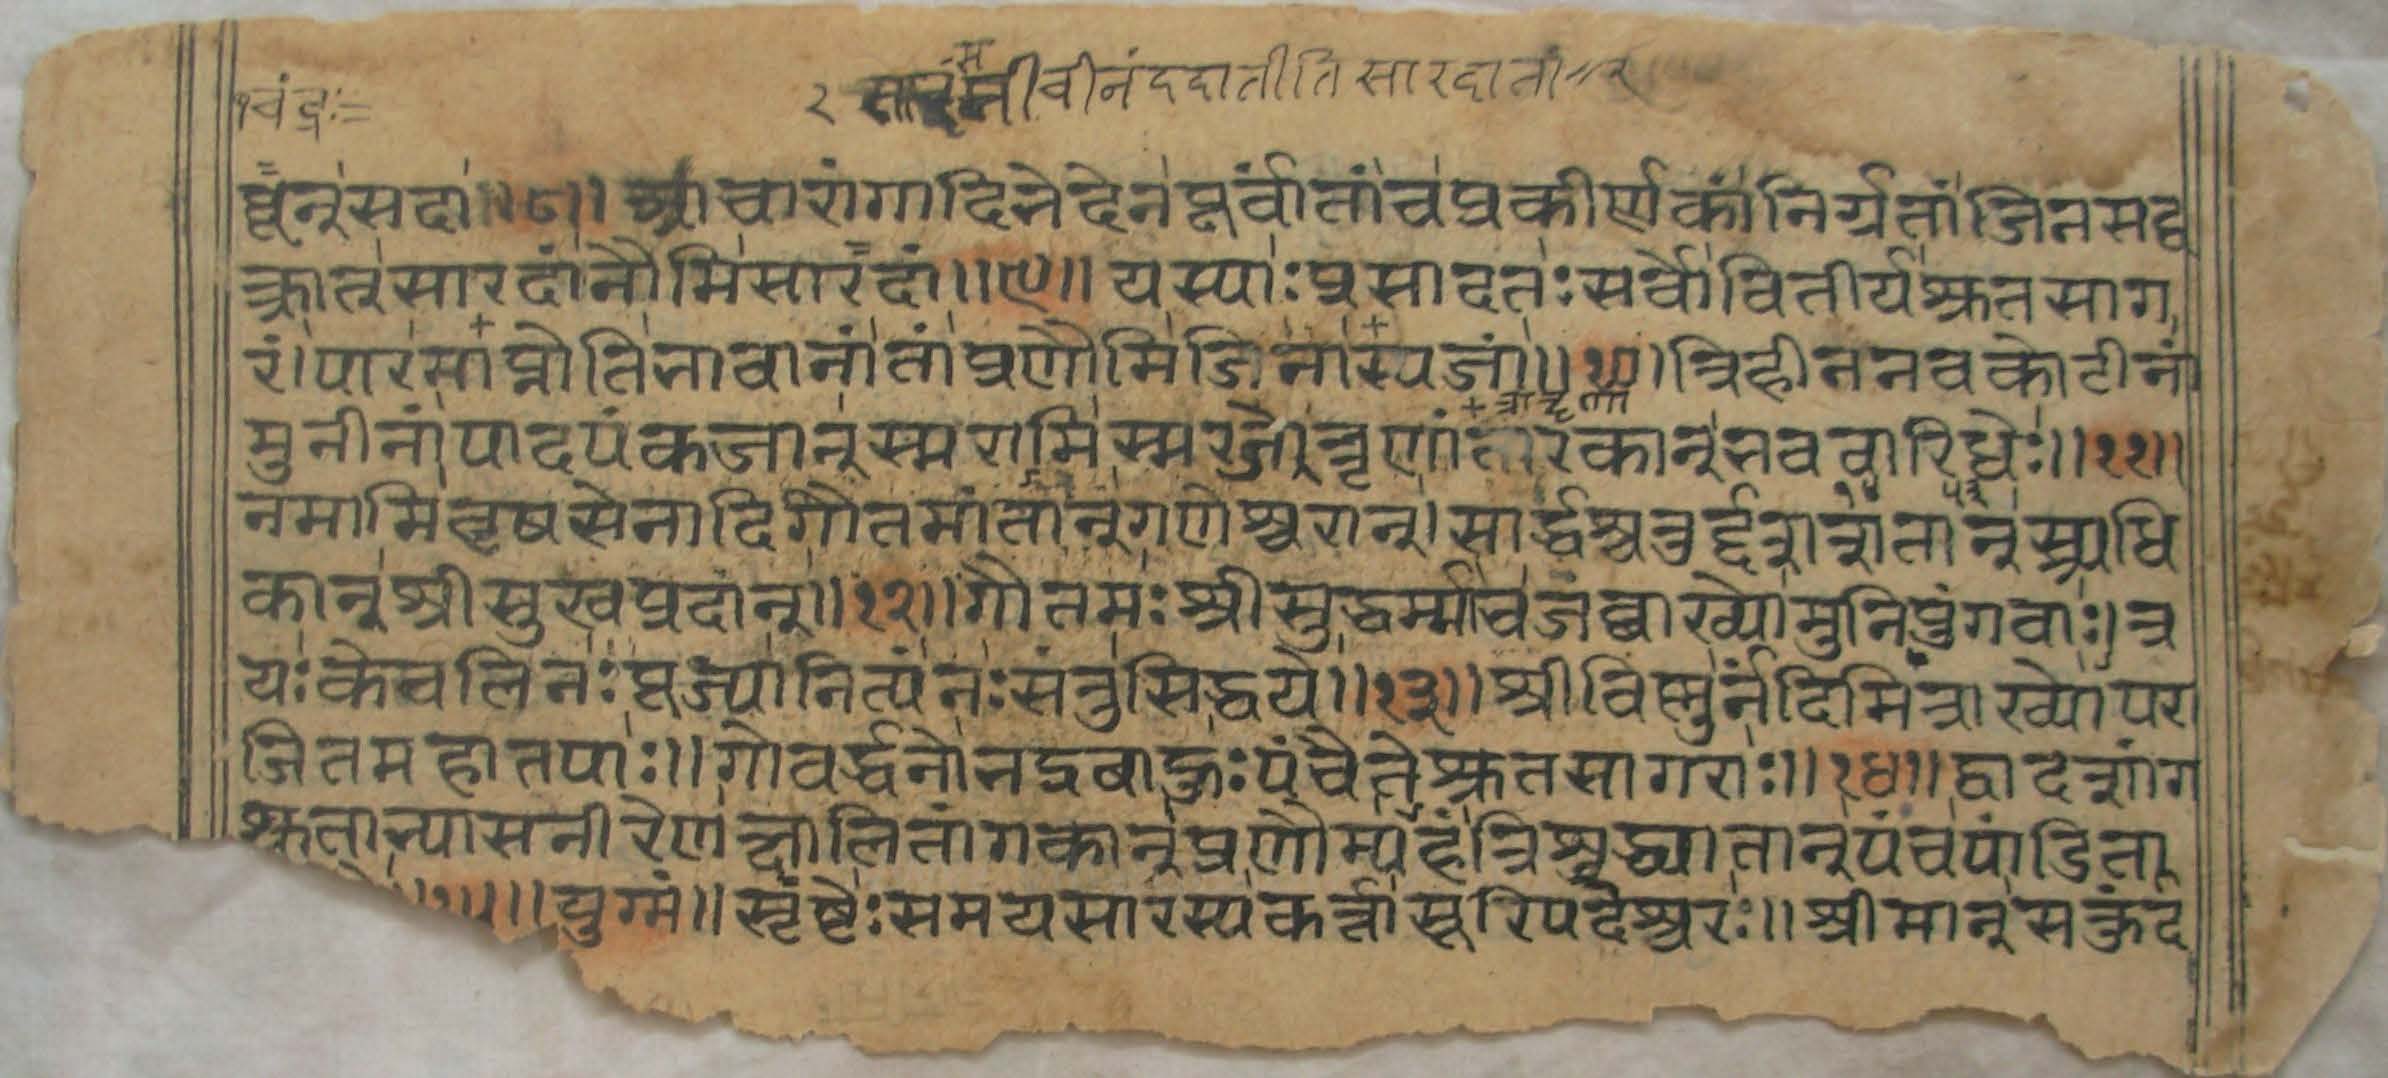 १चंद्रः=
२ समीचीनं ददातीति सारदा तां २
न् सदा ॥८॥ आचारांगादिभेदेन पूर्वांतां च प्रकीर्णकां निर्ग्रतां जिनसद्व
क्त्रात् सारदां नौमि सारदां ॥९॥ यस्याः प्रसादतः सर्वो वितीर्य श्रुतसाग
रं। पारमाप्नोति भावानां तां प्रणौमि जिनास्यजां ॥१०॥ त्रिहीननवकोटीनां
मुनीनां पादपंकजान् स्मरामि स्मरजेतॄन् नॄणां तारकान् भववारिधेः ॥११॥
नमामि वृषसेनादिगौतमांतान् गणेश्वरान्। सार्द्धश्चतुर्द्दशशतान् त्र्यधि
कान् श्रीसुखप्रदान् ॥१२॥ गौतमः श्रीसुधर्म्मा च जंब्वाख्यो मुनिपुंगवाः। त्र
यः केवलिनः पूज्या नित्यं नः संतु सिद्धये ॥१३॥ श्रीविष्णुर्नंदिमित्राख्योपरा
जितमहातपाः ॥ गोवर्द्धनो भद्रबाहुः पंचैते श्रुतसागराः ॥१४॥ द्वादशांग
श्रुताभ्यासनीरेण क्षालितांगकान् प्रणौम्यहं त्रिशुद्ध्या तान् पंच पंडिता
॥१५॥ युग्मं ॥ सृष्टेः समयसारस्य कर्त्ता सूरिपदेश्वरः ॥ श्रीमान् स कुंद